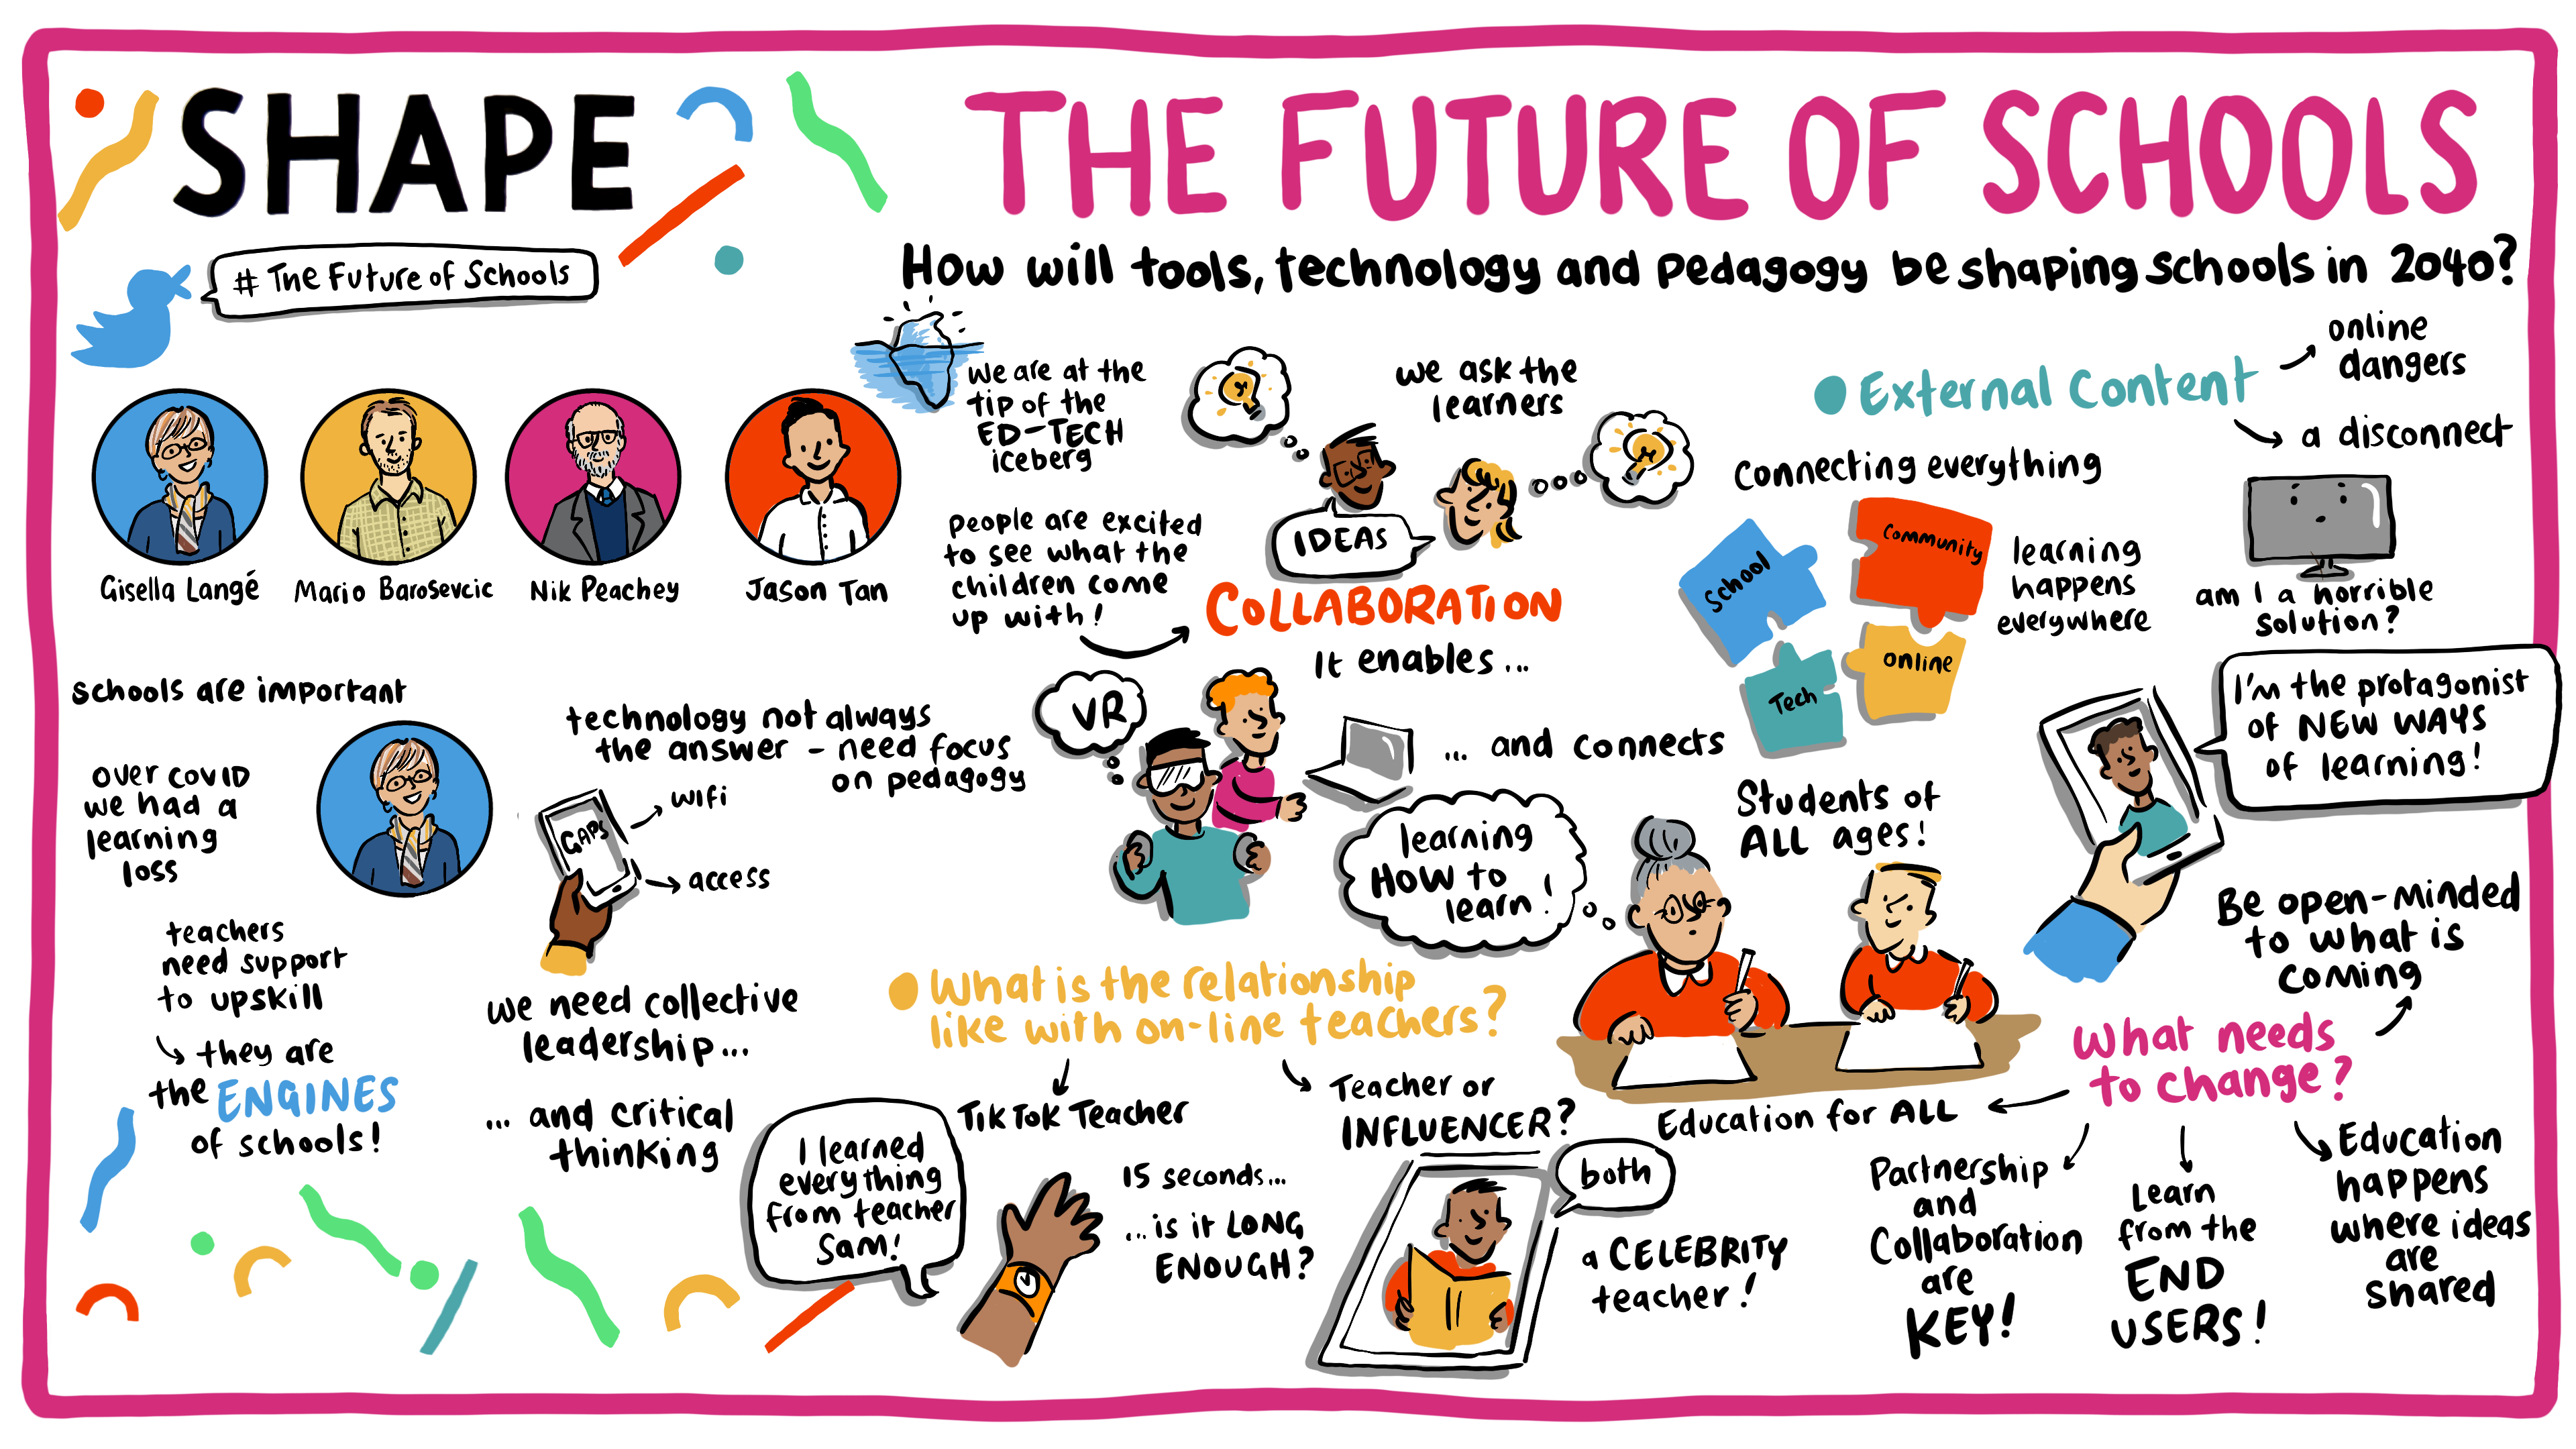 SHAPE
# The Future of Schools
THE FUTURE OF SCHOOLS
How will tools, technology and pedagogy be shaping schools in 2040?
Gisella Langé
Mario Barosevcic
Nik Peachey
Jason Tan
we are at the
tip of the
ED-TECH
iceberg
people are excited
to see what the
children come
up with!
we ask the
learners
IDEAS
COLLABORATION
It enables...
VR
... and connects
External Content
online
dangers
a disconnect
connecting everything
School
Community
Tech
online
learning
happens
everywhere
am I a horrible
solution?
I'm the protagonist
of NEW WAYS
of learning!
schools are important
over covid
we had a
learning
loss
teachers
need support
to upskill
they are
the ENGINES
of schools!
technology not always
the answer - need focus
on pedagogy
GAPS
wifi
access
we need collective
leadership...
... and critical
thinking
learning
HOW to
learn!
Students of
ALL ages!
What is the relationship
like with on-line teachers?
TikTok Teacher
I learned
everything
from teacher
Sam!
15 seconds...
...is it LONG
ENOUGH?
Teacher or
INFLUENCER?
both
a CELEBRITY
teacher!
What needs
to change?
Be open-minded
to what is
coming
Education for ALL
Partnership
and
Collaboration
are
KEY!
Learn
from the
END
USERS!
Education
happens
where ideas
are
shared